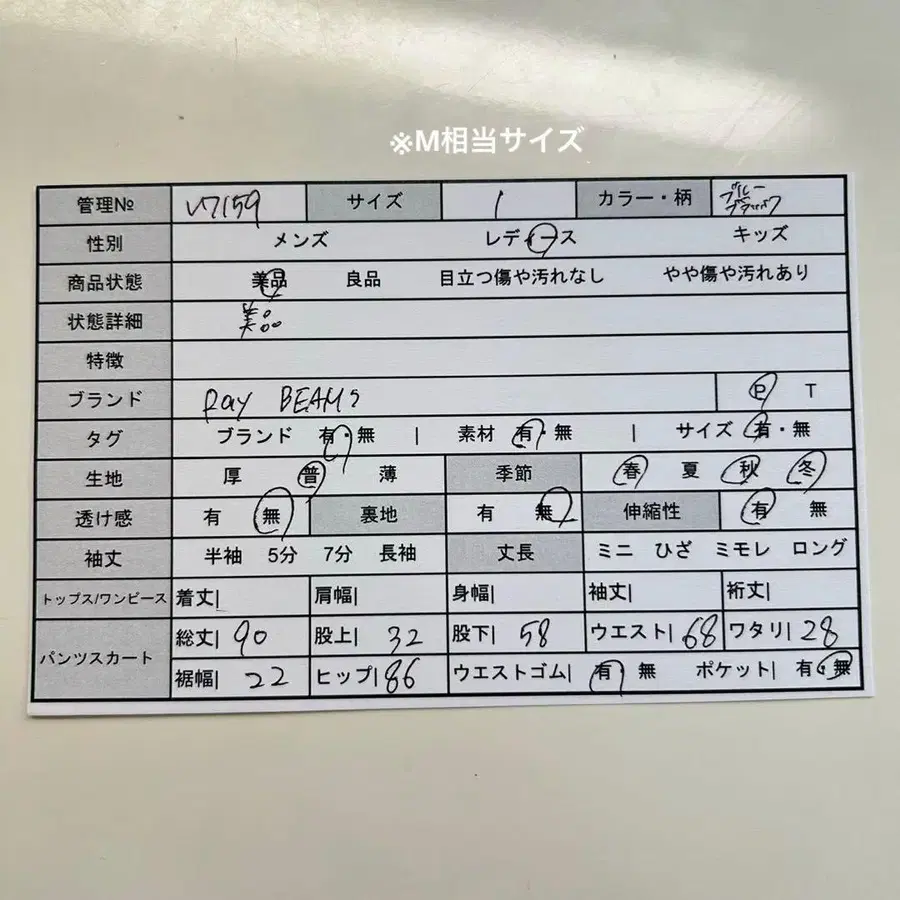 ※M相当サイズ
管理№ V7159 サイズ 1 カラー・柄 ブルー ブラック
性別 メンズ レディース キッズ
商品状態 美品 良品 目立つ傷や汚れなし やや傷や汚れあり
状態詳細 美品
特徴
ブランド Ray BEAMS P T
タグ ブランド 有・無 | 素材 有・無 | サイズ 有・無
生地 厚 普 薄 季節 春 夏 秋 冬
透け感 有 無 裏地 有 無 伸縮性 有 無
袖丈 半袖 5分 7分 長袖 丈長 ミニ ひざ ミモレ ロング
トップス/ワンピース 着丈| 肩幅| 身幅| 袖丈| 裄丈|
パンツスカート 総丈| 90 股上| 32 股下| 58 ウエスト| 68 ワタリ| 28
裾幅| 22 ヒップ| 86 ウエストゴム| 有 無 ポケット| 有・無